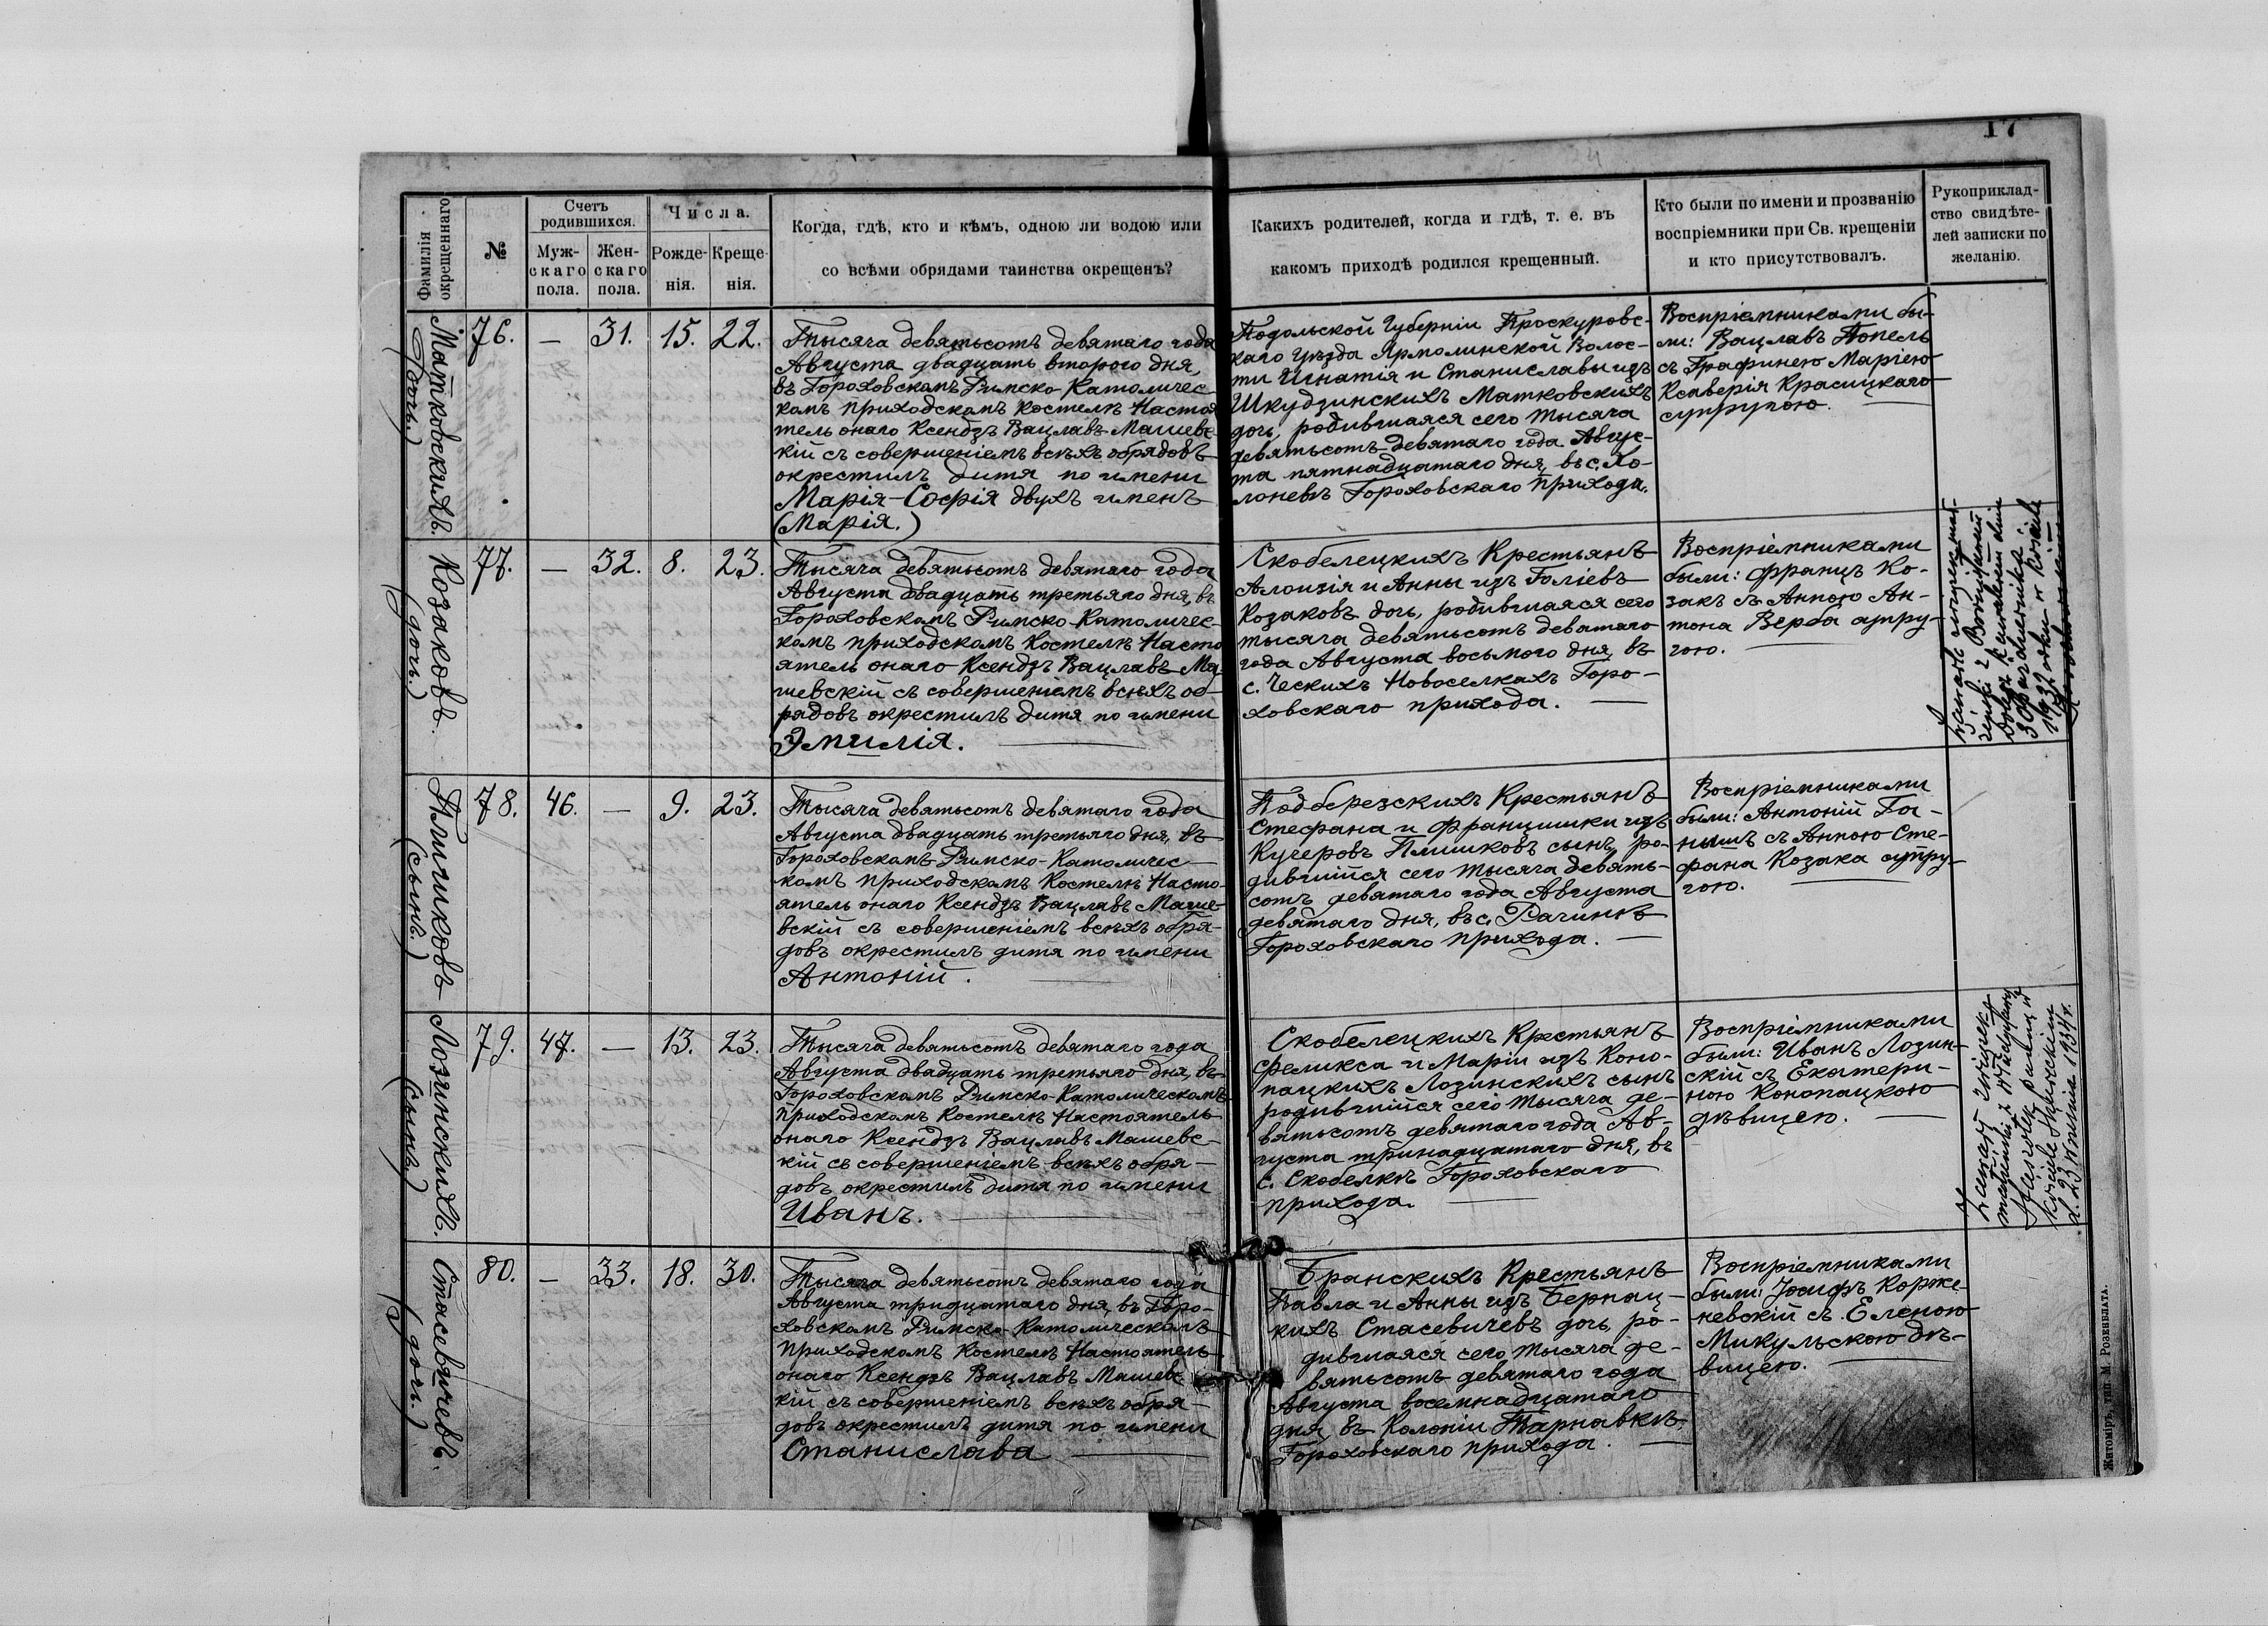 17
Фамилія окрещеннаго
№
Счетъ родившихся.
Муж-
скаго
пола.
Жен-
скаго
пола.
Числа.
Рожде-
нія.
Креще-
нія.
Когда, гдѣ, кто и кѣмъ, одною ли водою или
со всѣми обрядами таинства окрещенъ?
Какихъ родителей, когда и гдѣ, т. е. въ
какомъ приходѣ родился крещенный.
Кто были по имени и прозванію
воспріемники при Св. крещеніи
и кто присутствовалъ.
Рукоприклад-
ство свидѣте-
лей записки по
желанію.
Матковскихъ.
(дочь.)
76. — 31. 15. 22.
Тысяча девятьсотъ девятаго года
Августа двадцать второго дня,
въ Гороховскомъ Римско-Католичес-
комъ приходскомъ костелѣ Настоя
тель онаго Ксендзъ Вацлавъ Машевс-
кій съ совершеніемъ всѣхъ обрядовъ
окрестилъ дитя по имени
Марія-Софія двухъ именъ
(Марія.)
Подольской Губерніи Проскуровс-
каго Уѣзда Ярмолинской Волос-
ти Игнатія и Станиславы изъ
Шкудзинскихъ Матковскихъ
дочь, родившаяся сего тысяча
девятьсотъ девятаго года Авгус-
та пятнадцатаго дня, въ с. Хо-
лоневѣ Гороховскаго прихода.
Воспріемниками бы-
ли: Вацлавъ Попель
съ Графинею Маріею
Ксаверія Красицкаго
супругою. —
Козаковъ.
(дочь.)
77. — 32. 8. 23.
Тысяча девятьсотъ девятаго года
Августа двадцать третьяго дня, въ
Гороховскомъ Римско-Католичес-
комъ приходскомъ Костелѣ Насто
ятель онаго Ксендзъ Вацлавъ Ма-
шевскій съ совершеніемъ всѣхъ об-
рядовъ окрестилъ дитя по имени
Эмилія. —
Скобелецкихъ Крестьянъ
Алоизія и Анны изъ Голіевъ
Козаковъ дочь, родившаяся сего
тысяча девятьсотъ девятаго
года Августа восьмого дня, въ
с. Ческихъ Новоселкахъ Горо-
ховскаго прихода. —
Воспріемниками
были: Францъ Ко-
закъ съ Анною Ан-
тона Верба супру-
гою. —
30 października
1932 roku w kościele
Плишковъ
(сынъ.)
78. 46. — 9. 23.
Тысяча девятьсотъ девятаго года
Августа двадцать третьяго дня, въ
Гороховскомъ Римско-Католичес-
комъ приходскомъ Костелѣ Насто-
ятель онаго Ксендзъ Вацлавъ Маше-
вскій съ совершеніемъ всѣхъ обря-
довъ окрестилъ дитя по имени
Антоній. —
Подберезскихъ Крестьянъ
Стефана и Францишки изъ
Кучеровъ Плишковъ сынъ, ро-
дившійся сего тысяча девять-
сотъ девятаго года Августа
девятаго дня, въ с. Рачинѣ
Гороховскаго прихода. —
Воспріемниками
были: Антоній Га-
нышъ съ Анною Сте-
фана Козака супру-
гою. —
Лозинскихъ.
(сынъ.)
79. 47. — 13. 23.
Тысяча девятьсотъ девятаго года
Августа двадцать третьяго дня, въ
Гороховскомъ Римско-Католическомъ
приходскомъ Костелѣ Настоятель
онаго Ксендзъ Вацлавъ Машевс-
кій съ совершеніемъ всѣхъ обря-
довъ окрестилъ дитя по имени
Иванъ. —
Скобелецкихъ Крестьянъ
Феликса и Маріи изъ Коно-
пацкихъ Лозинскихъ сынъ
родившійся сего тысяча де-
вятьсотъ девятаго года Ав-
густа тринадцатаго дня, въ
с. Скобелкѣ Гороховскаго
прихода. —
Воспріемниками
были: Иванъ Лозин-
скій съ Екатери-
ною Конопацкою
дѣвицею. —
Zawarł związek
małżeński z
Стасевичевъ.
(дочь.)
80. — 33. 18. 30.
Тысяча девятьсотъ девятаго года
Августа тридцатаго дня, въ Горо-
ховскомъ Римско-Католическомъ
приходскомъ Костелѣ Настоятель
онаго Ксендзъ Вацлавъ Машевс
кій съ совершеніемъ всѣхъ обря-
довъ окрестилъ дитя по имени
Станислава —
Бранскихъ Крестьянъ
Павла и Анны изъ Бернац-
кихъ Стасевичевъ дочь, ро-
дившаяся сего тысяча де-
вятьсотъ девятаго года
Августа восемнадцатаго
дня, въ Колоніи Тарнавкѣ
Гороховскаго прихода. —
Воспріемниками
были: Іосифъ Корже-
невскій съ Еленою
Микульскою дѣ-
вицею. —
Житоміръ, тип. М. Розенблата.